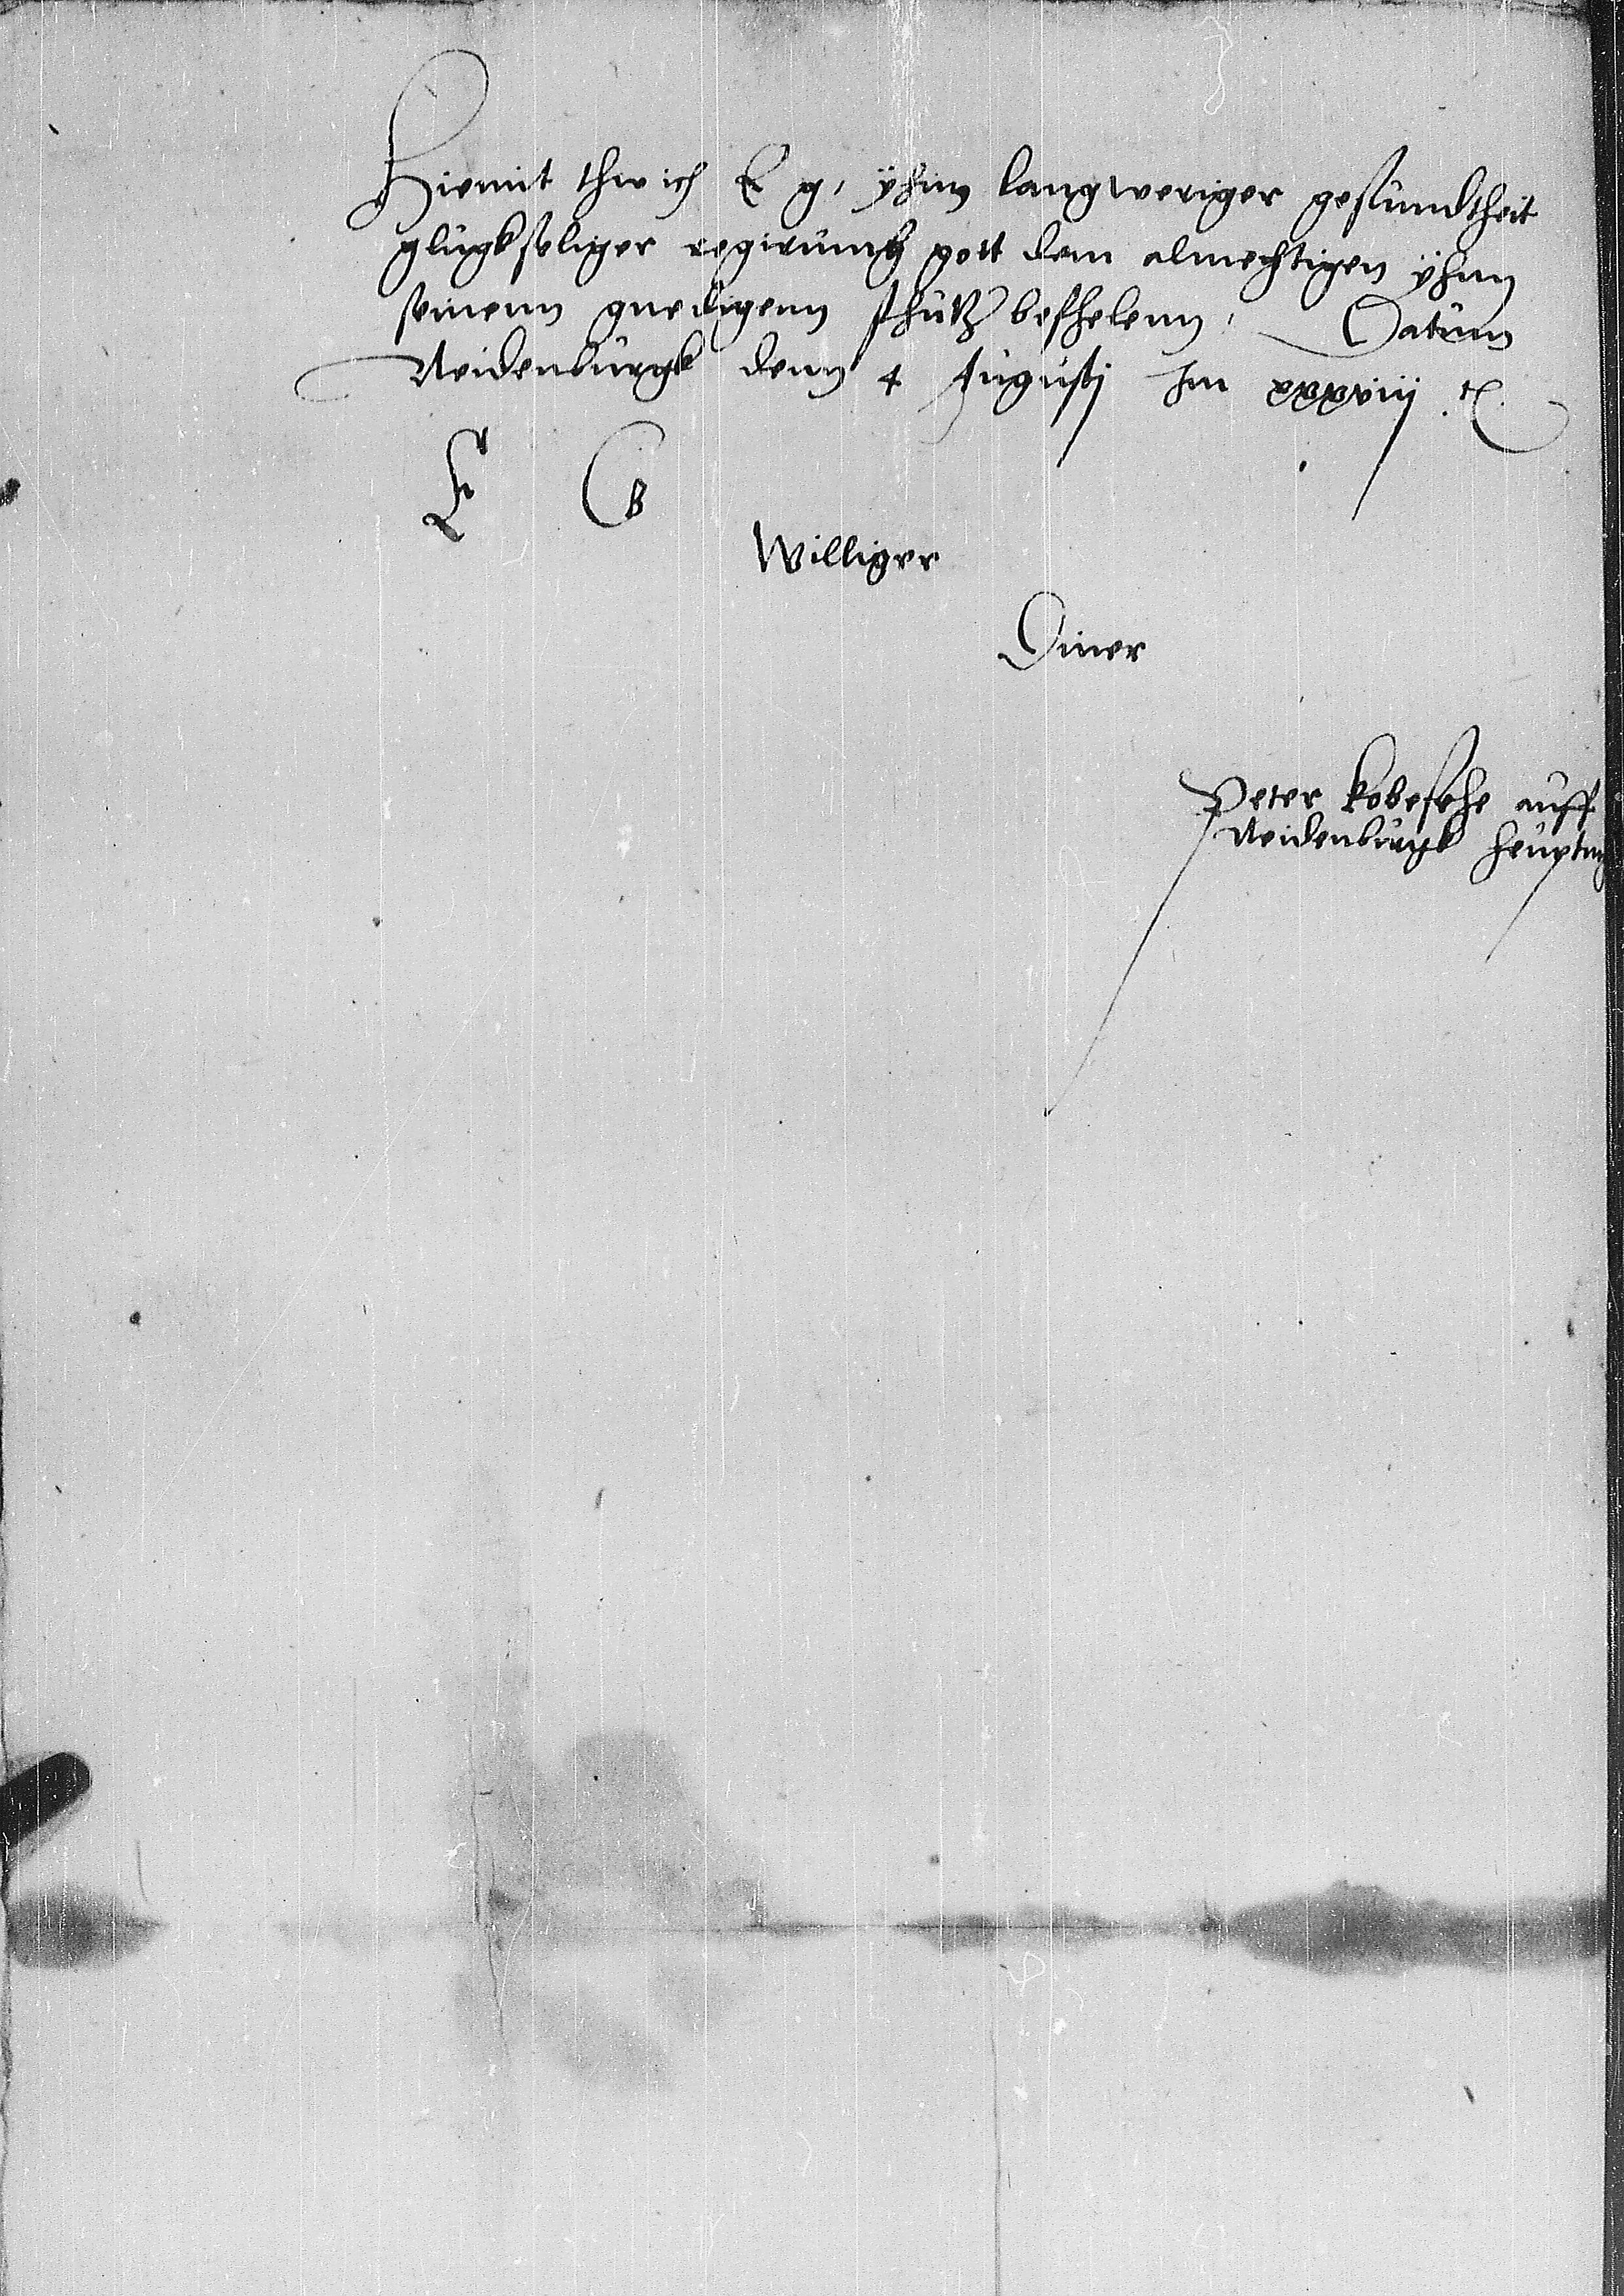 Hiemit thw ich E g, ÿhnn langweriger gesundtheit
glugkseliger regirung gott dem almechtigen ÿhnn
seinenn gnedigenn schutz befhelenn, Datum
Neidenburgk denn 4 Augustj Im xxxxviij
E G
Williger
Diner
Peter kobersehe auff
Neidenburgk heuptm